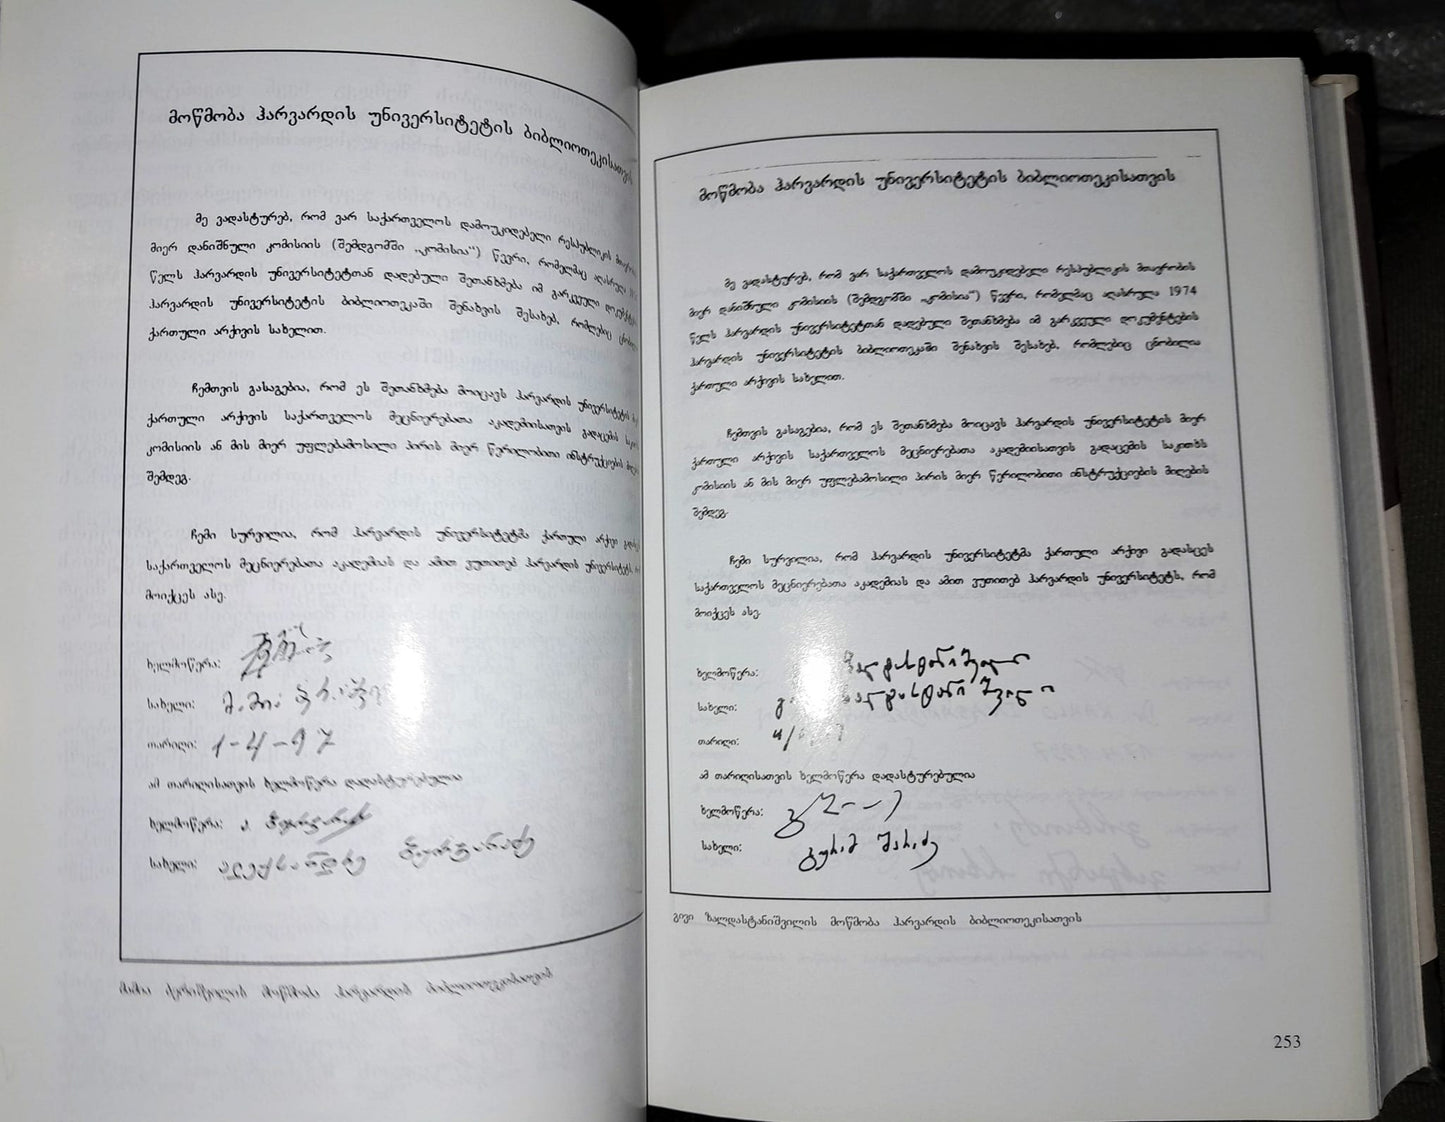 მოწმობა ჰარვარდის უნივერსიტეტის ბიბლიოთეკისათვის
მე ვადასტურებ, რომ ვარ საქართველოს დამოუკიდებელი რესპუბლიკის
მიერ დანიშნული კომისიის (შემდგომში „კომისია“) წევრი, რომელმაც აღასრულა
წელს ჰარვარდის უნივერსიტეტთან დადებული შეთანხმება იმ გარკვეული
ჰარვარდის უნივერსიტეტის ბიბლიოთეკაში შენახვის შესახებ, რომლებიც
ქართული არქივის სახელით.
ჩემთვის გასაგებია, რომ ეს შეთანხმება მოიცავს ჰარვარდის უნივერსიტეტის
ქართული არქივის საქართველოს მეცნიერებათა აკადემიისათვის გადაცემის
კომისიის ან მის მიერ უფლებამოსილი პირის მიერ წერილობითი ინსტრუქციების
შემდეგ.
ჩემი სურვილია, რომ ჰარვარდის უნივერსიტეტმა ქართული არქივი
საქართველოს მეცნიერებათა აკადემიას და ამით ვუთითებ ჰარვარდის უნივერსიტეტს,
მოიქცეს ასე.
ხელმოწერა:
სახელი:
თარიღი: 1-4-97
ამ თარიღისათვის ხელმოწერა დადასტურებულია
ხელმოწერა:
სახელი: ალექსანდრე
მოწმობა ჰარვარდის ბიბლიოთეკისათვის
მოწმობა ჰარვარდის უნივერსიტეტის ბიბლიოთეკისათვის
მე ვადასტურებ, რომ ვარ საქართველოს დამოუკიდებელი რესპუბლიკის მთავრობის
მიერ დანიშნული კომისიის (შემდგომში „კომისია“) წევრი, რომელმაც აღასრულა 1974
წელს ჰარვარდის უნივერსიტეტთან დადებული შეთანხმება იმ გარკვეული დოკუმენტების
ჰარვარდის უნივერსიტეტის ბიბლიოთეკაში შენახვის შესახებ, რომლებიც ცნობილია
ქართული არქივის სახელით.
ჩემთვის გასაგებია, რომ ეს შეთანხმება მოიცავს ჰარვარდის უნივერსიტეტის მიერ
ქართული არქივის საქართველოს მეცნიერებათა აკადემიისათვის გადაცემის საკითხს
კომისიის ან მის მიერ უფლებამოსილი პირის მიერ წერილობითი ინსტრუქციების მიღების
შემდეგ.
ჩემი სურვილია, რომ ჰარვარდის უნივერსიტეტმა ქართული არქივი გადასცეს
საქართველოს მეცნიერებათა აკადემიას და ამით ვუთითებ ჰარვარდის უნივერსიტეტს, რომ
მოიქცეს ასე.
ხელმოწერა: ზალდასტანიშვილი
სახელი: გ. ზალდასტანიშვილი
თარიღი:
ამ თარიღისათვის ხელმოწერა დადასტურებულია
ხელმოწერა:
სახელი: გურამ შარაძე
გივი ზალდასტანიშვილის მოწმობა ჰარვარდის ბიბლიოთეკისათვის
253